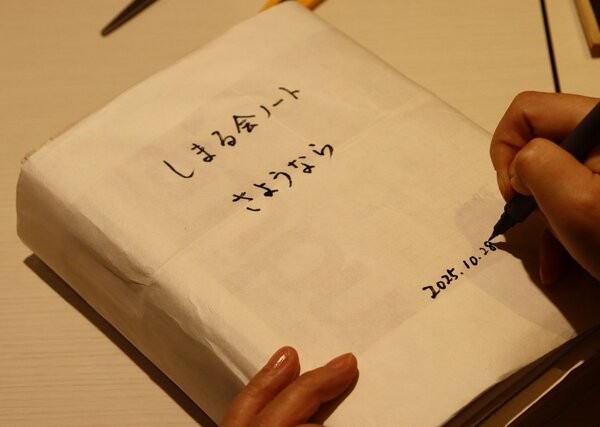 しまる会ノート
さようなら
2025.10.28